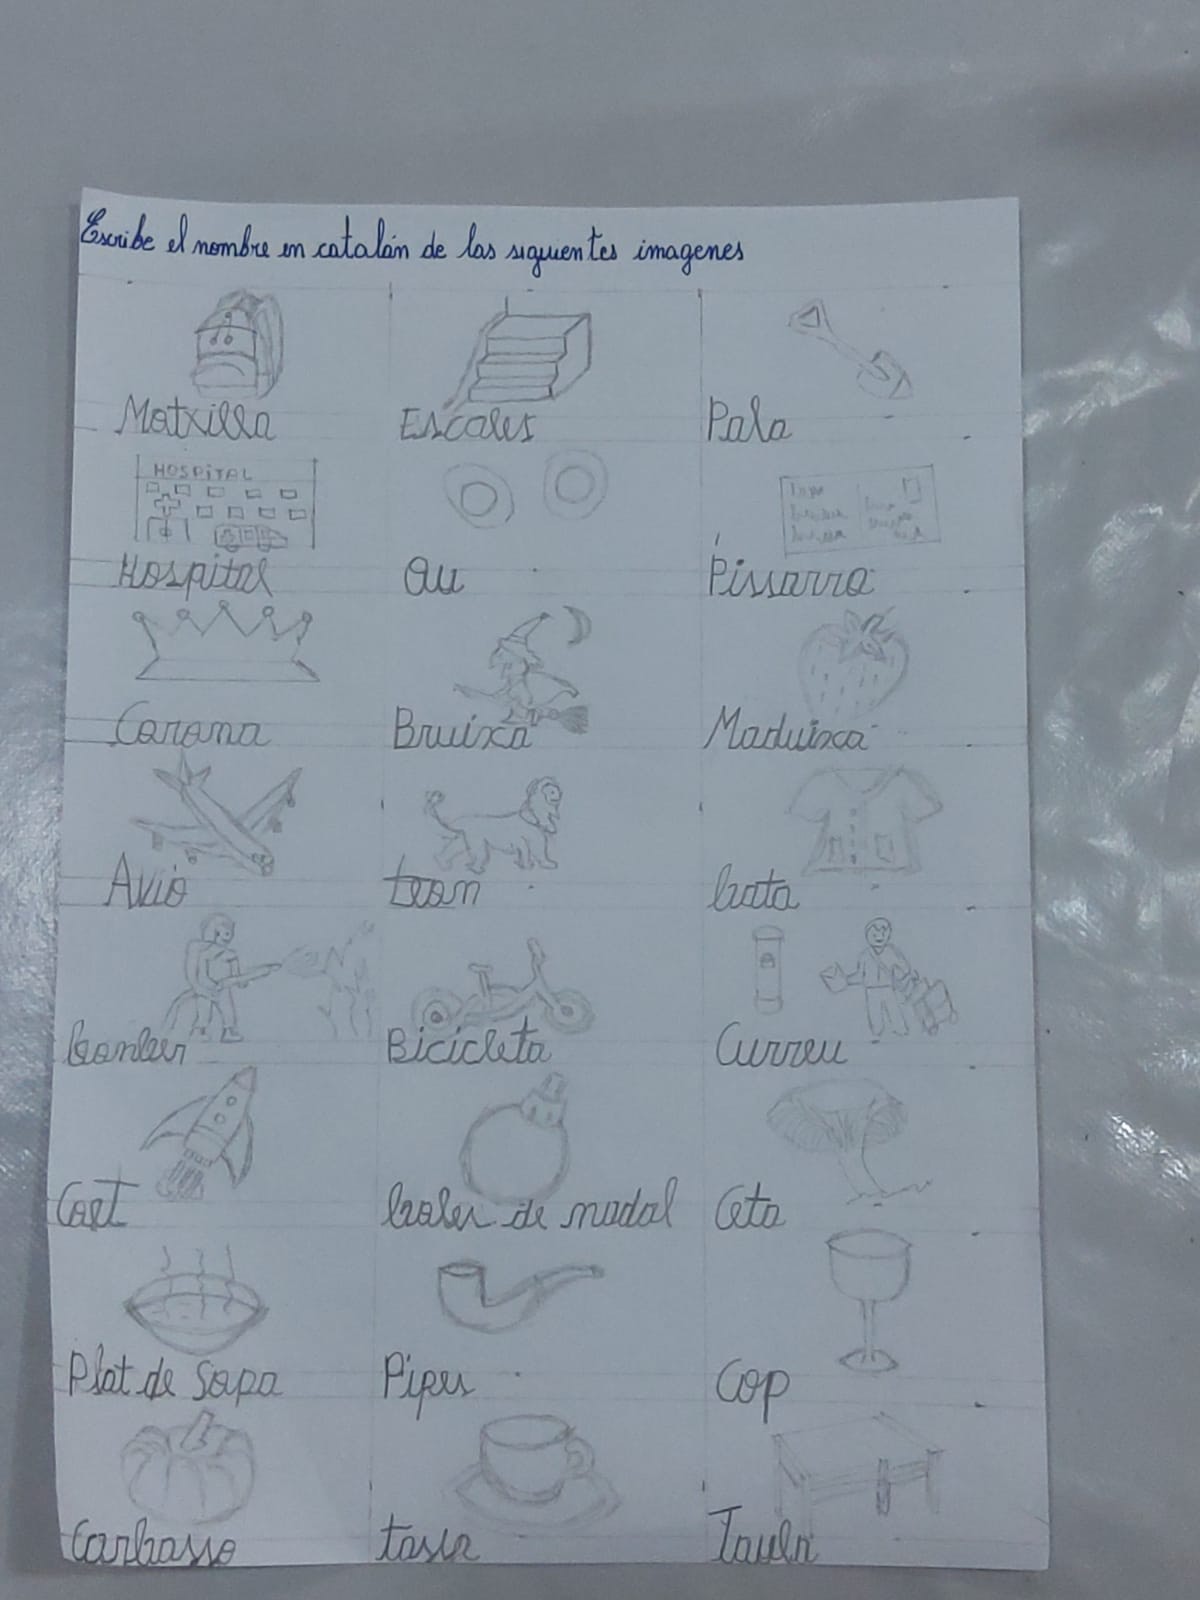 Escribe el nombre en catalán de las siguientes imagenes
Motxilla Escales Pala
HOSPITAL
Hospital Ou Pissarra
Corona Bruixa Maduixa
Avió bata
Bicicleta Curreu
Coet boles de nadal Ceta
Plat de Sopa Pipes Cop
Carbasse Taula